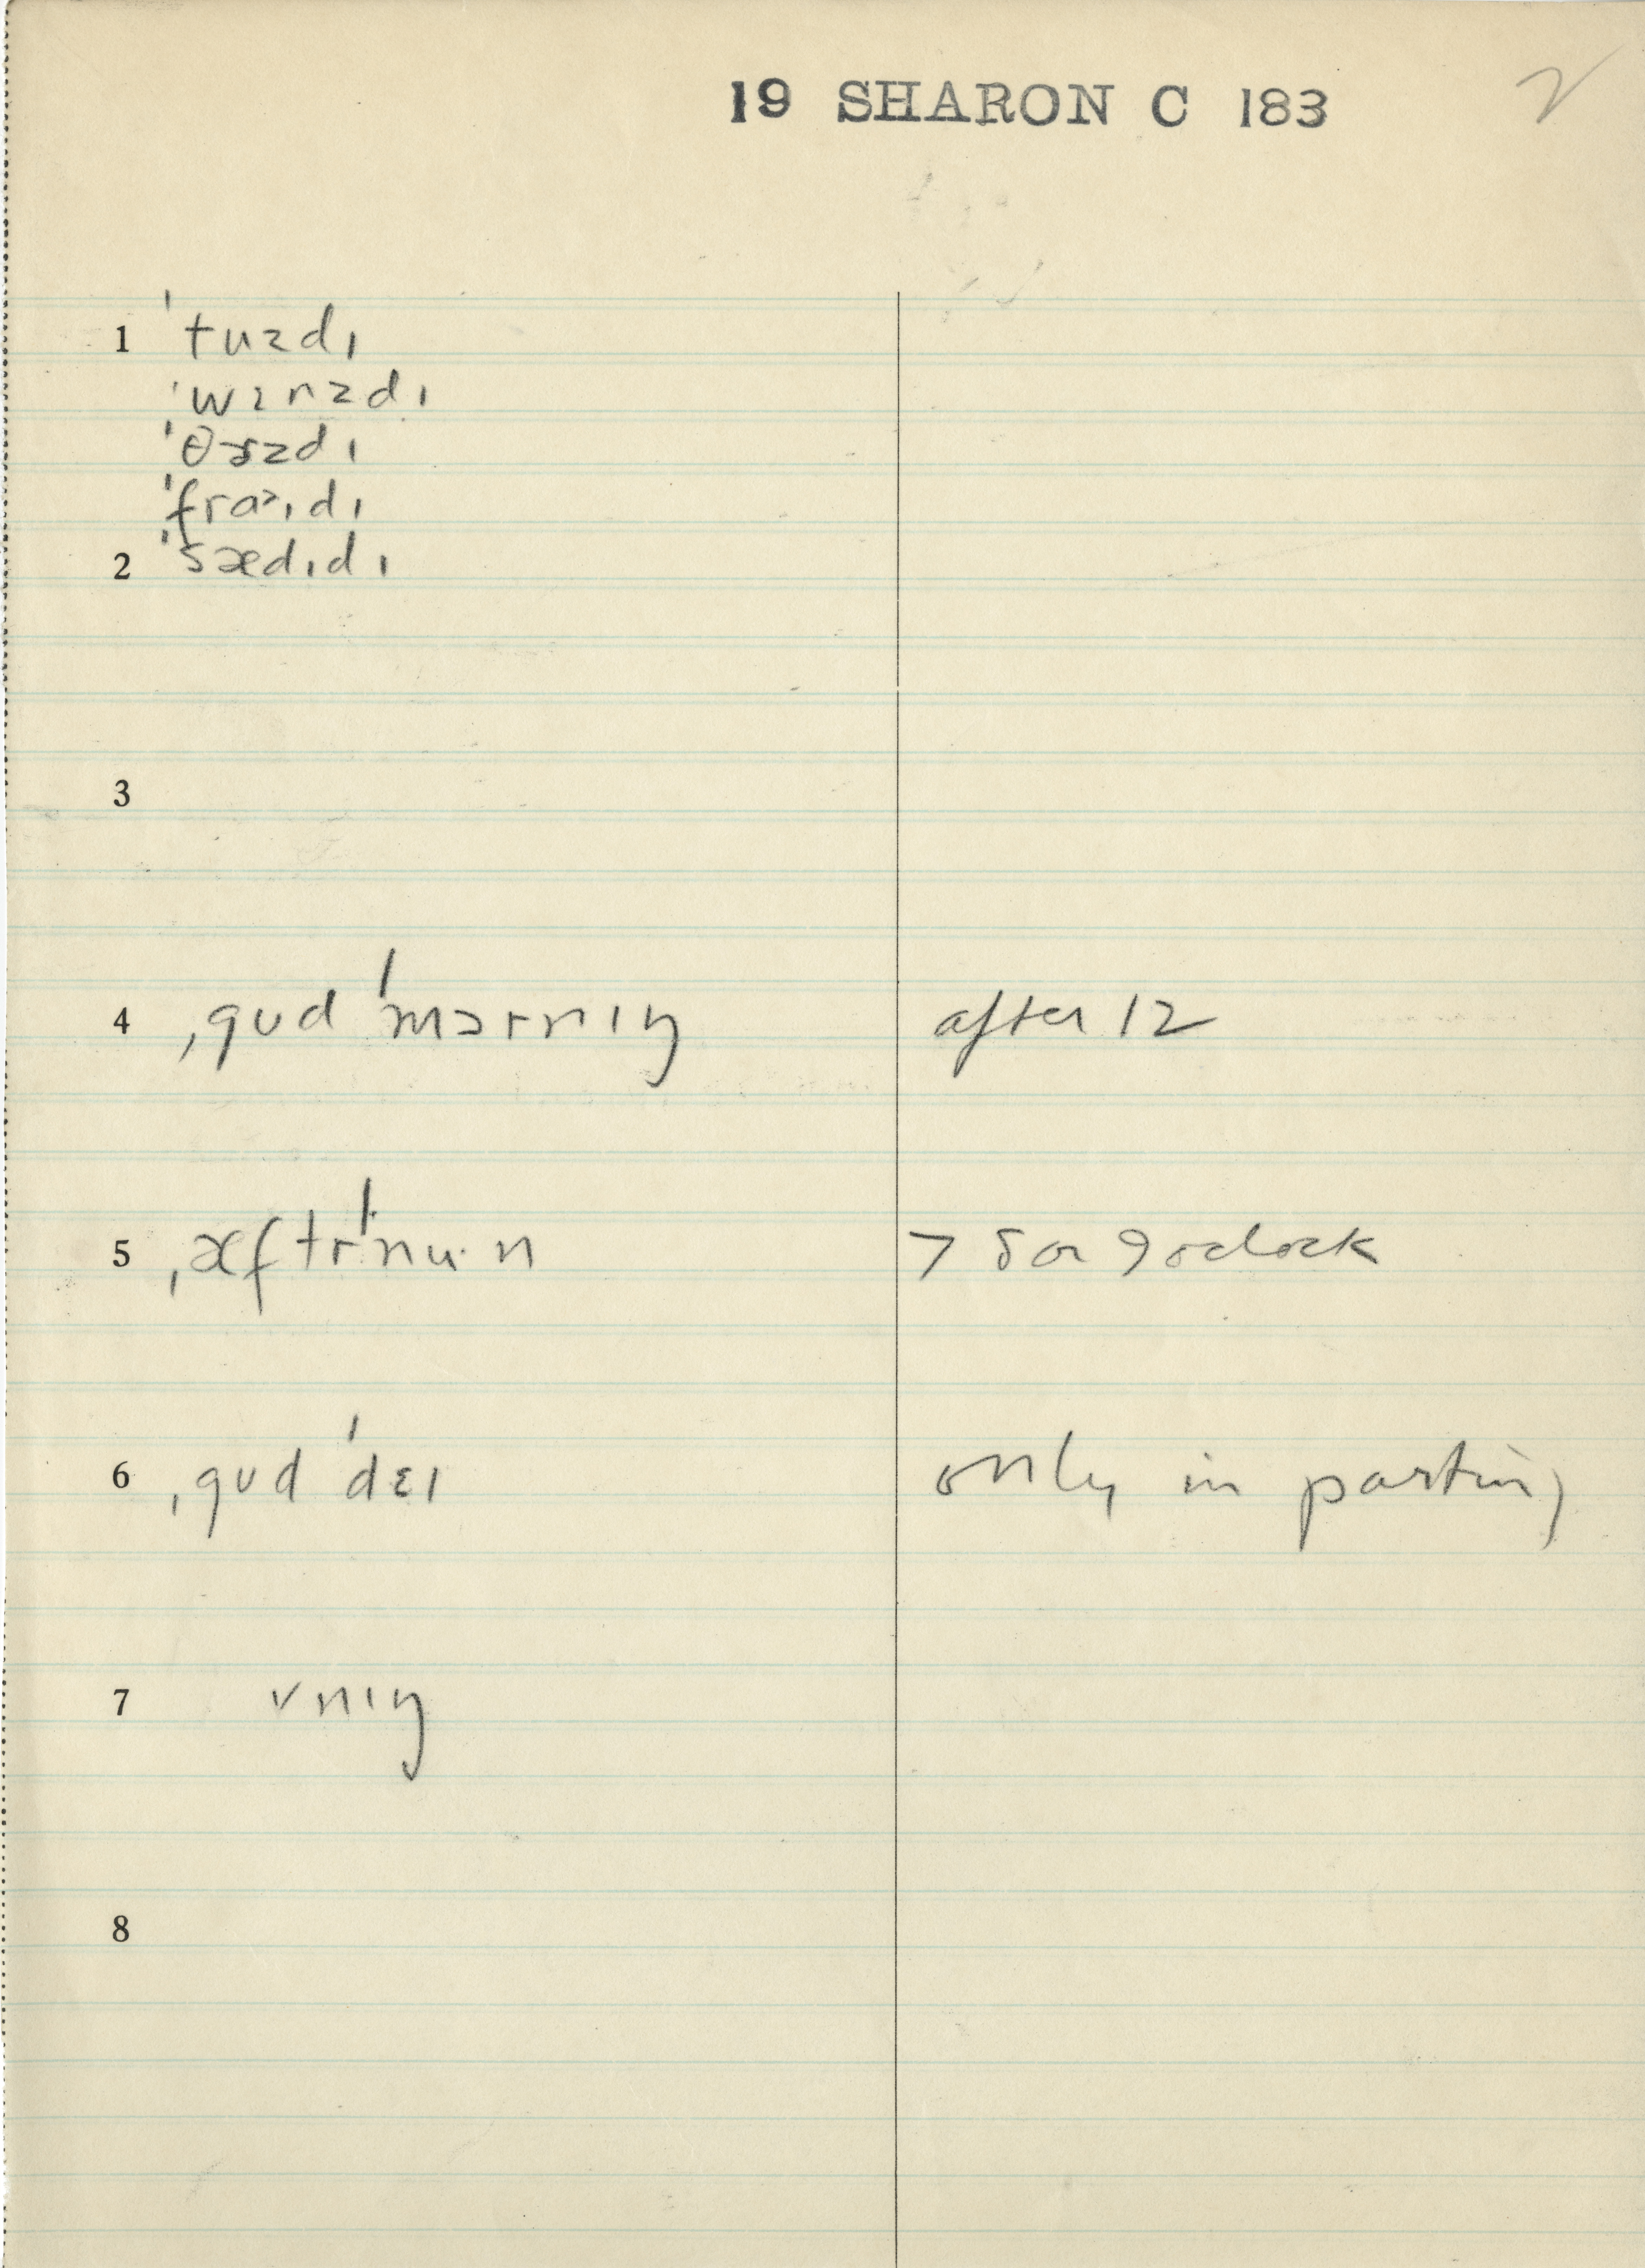 19 SHARON C 183 2
1 ˈtuzdɪ
ˈwɪnzdɪ
ˈθɝzdɪ
ˈfraˑɪdɪ
2 ˈsædɪdɪ
3
4 ˌgʊd ˈmɔrnɪŋ after 12
5 ˌæftrˈnuˑn > 8 or 9 oclock
6 ˌgʊd ˈdɛɪ only in parting
7 vnɪŋ
8